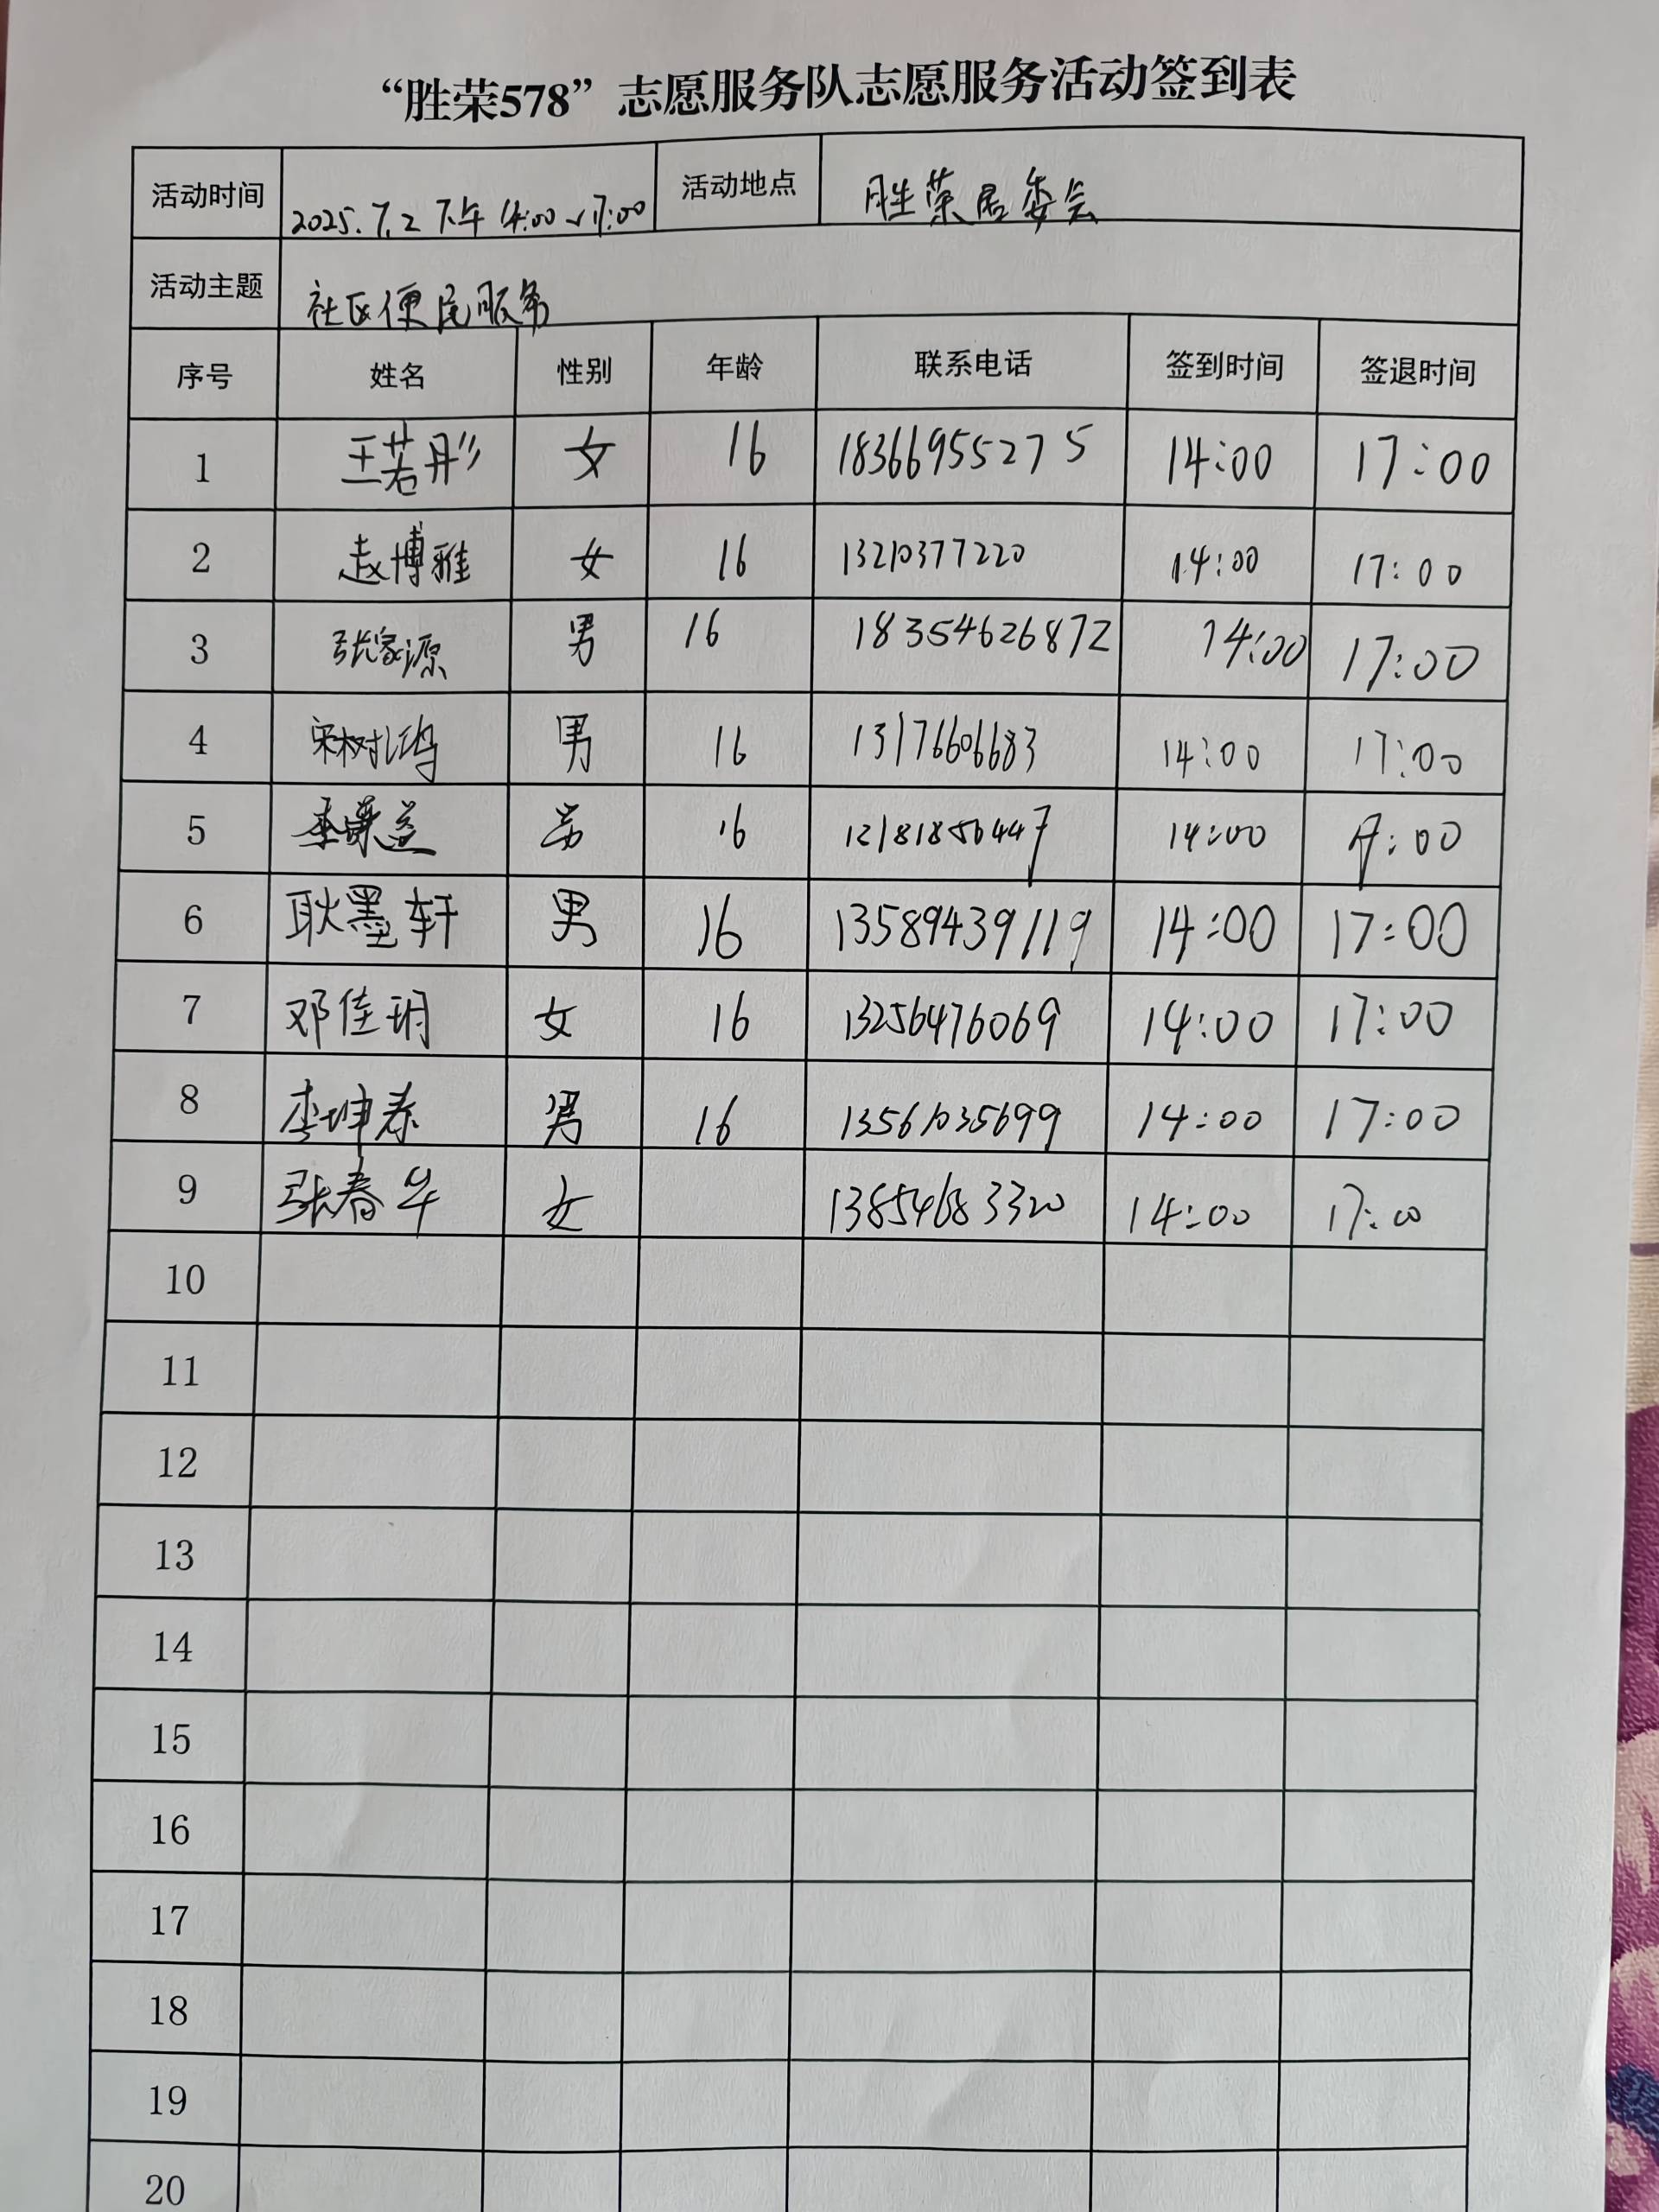 “胜荣578”志愿服务队志愿服务活动签到表
活动时间 2025.7.2 下午 14:00~17:00 活动地点 胜荣居委会
活动主题 社区便民服务
序号 姓名 性别 年龄 联系电话 签到时间 签退时间
1 王若彤 女 16 18366955275 14:00 17:00
2 赵博雅 女 16 13210377220 14:00 17:00
3 张家源 男 16 18354626872 14:00 17:00
4 宋树鸿 男 16 13176606683 14:00 17:00
5 男 16 14:00 17:00
6 耿墨轩 男 16 13589439119 14:00 17:00
7 邓佳玥 女 16 13256476069 14:00 17:00
8 李坤泰 男 16 13561035699 14:00 17:00
9 张春华 女 13854683320 14:00 17:00
10
11
12
13
14
15
16
17
18
19
20